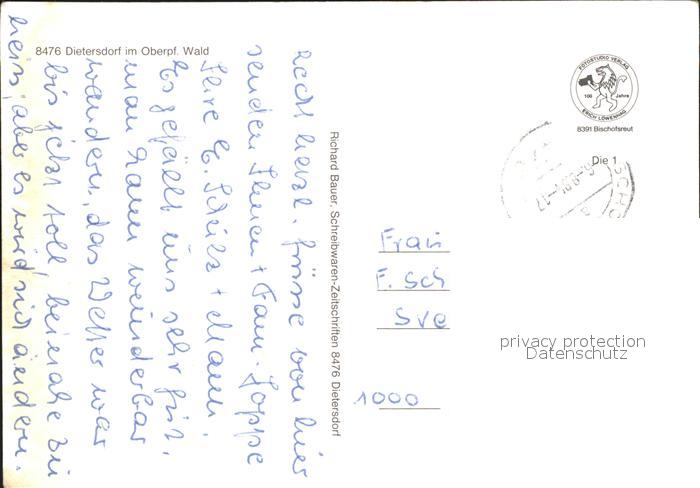 8476 Dietersdorf im Oberpf. Wald
Recht herzl. Grüsse von hier
senden Ihnen + Fam. Hoppe
Ihre E. Schulz + Mann.
Es gefällt uns sehr gut,
man kann wunderbar
wandern, das Wetter war
bis jetzt toll, beinahe zu
heiss, aber es wird sich ändern.
Richard Bauer, Schreibwaren-Zeitschriften 8476 Dietersdorf
FOTOSTUDIO VERLAG
100 Jahre
ERICH LÖWENHAG
8391 Bischofsreut
Die 1
Frau
F. Sch
Sve
1000
privacy protection
Datenschutz